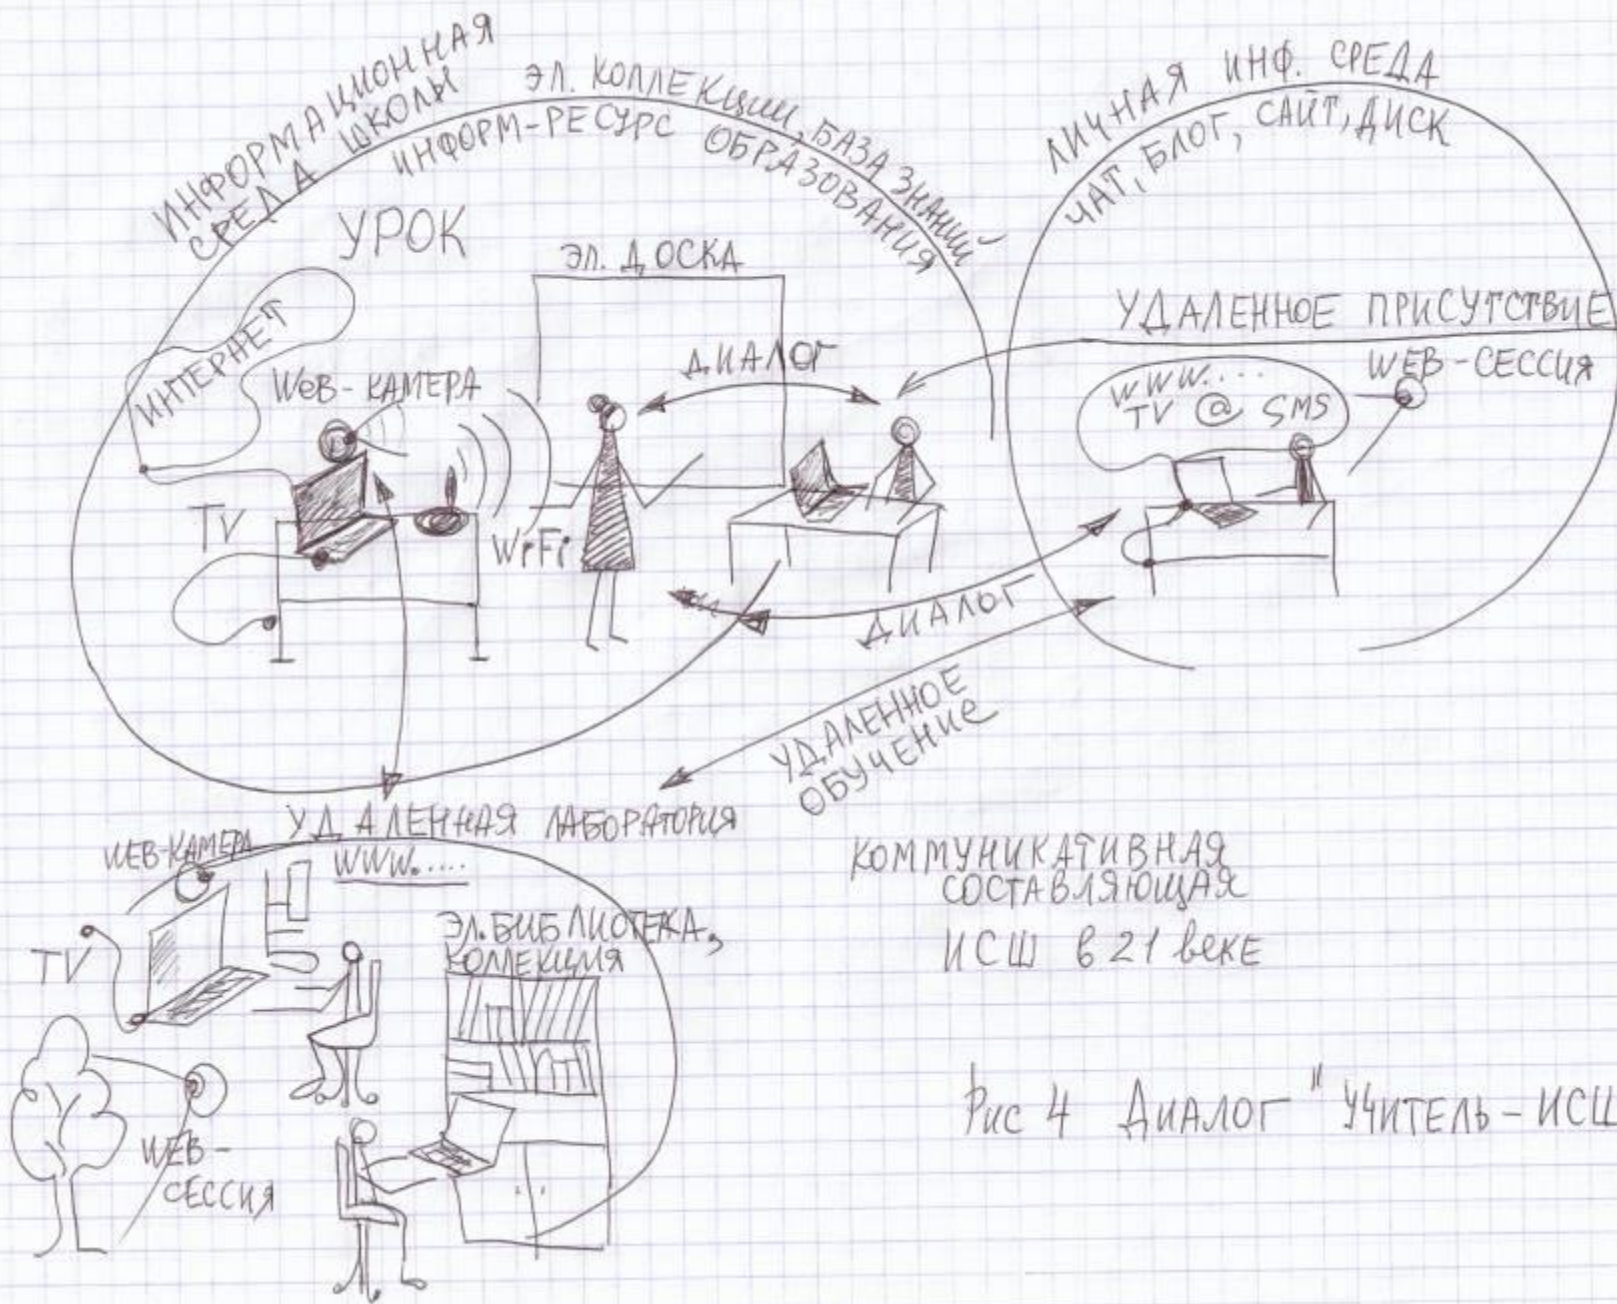 ИНФОРМАЦИОННАЯ
СРЕДА ШКОЛЫ
ЭЛ. КОЛЛЕКЦИИ, БАЗА ЗНАНИЙ
ИНФОРМ-РЕСУРС ОБРАЗОВАНИЯ
УРОК
ЭЛ. ДОСКА
ИНТЕРНЕТ
WEB-КАМЕРА
ДИАЛОГ
TV
WiFi
ЛИЧНАЯ ИНФ. СРЕДА
ЧАТ, БЛОГ, САЙТ, ДИСК
УДАЛЕННОЕ ПРИСУТСТВИЕ
WEB-СЕССИЯ
WWW....
TV @ SMS
ДИАЛОГ
УДАЛЕННОЕ
ОБУЧЕНИЕ
УДАЛЕННАЯ ЛАБОРАТОРИЯ
WEB-КАМЕРА
WWW.....
TV
ЭЛ. БИБЛИОТЕКА,
КОЛЛЕКЦИЯ
WEB-
СЕССИЯ
КОММУНИКАТИВНАЯ
СОСТАВЛЯЮЩАЯ
ИСШ в 21 веке
Рис 4 Диалог "УЧИТЕЛЬ - ИСШ